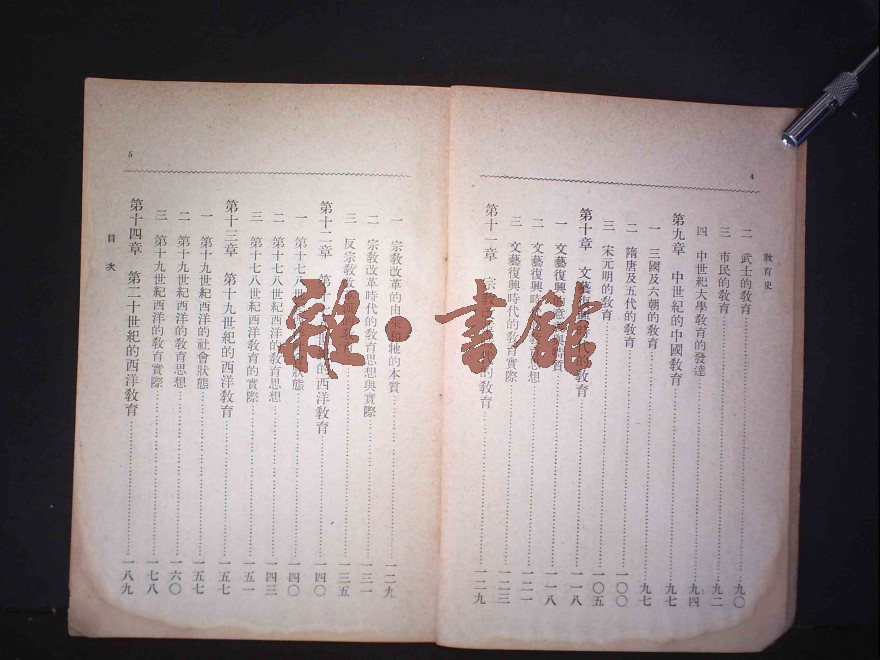 教育史
二 武士的教育 九〇
三 市民的教育 九二
四 中世紀大學教育的發達 九四
第九章 中世紀的中國教育 九七
一 三國及六朝的教育 九七
二 隋唐及五代的教育 一〇〇
三 宋元明的教育 一〇五
第十章 文藝復興時代的教育 一一八
一 文藝復興的意 質 一一八
二 文藝復興時代 教育思想 一二一
三 文藝復興時代的教育實際 一二三
第十一章 宗教改革 的教育 一二九
4
一 宗教改革的由來和牠的本質 一二九
二 宗教改革時代的教育思想與實際 一三一
三 反宗教改 一三五
第十二章 第十 世 的西洋教育 一四〇
一 第十七八世紀 狀態 一四〇
二 第十七八世紀西洋的教育思想 一四三
三 第十七八世紀西洋教育的實際 一五一
第十三章 第十九世紀的西洋教育 一五七
一 第十九世紀西洋的社會狀態 一五七
二 第十九世紀西洋的教育思想 一六〇
三 第十九世紀西洋的教育實際 一七八
第十四章 第二十世紀的西洋教育 一八九
目次
5
雜·書館